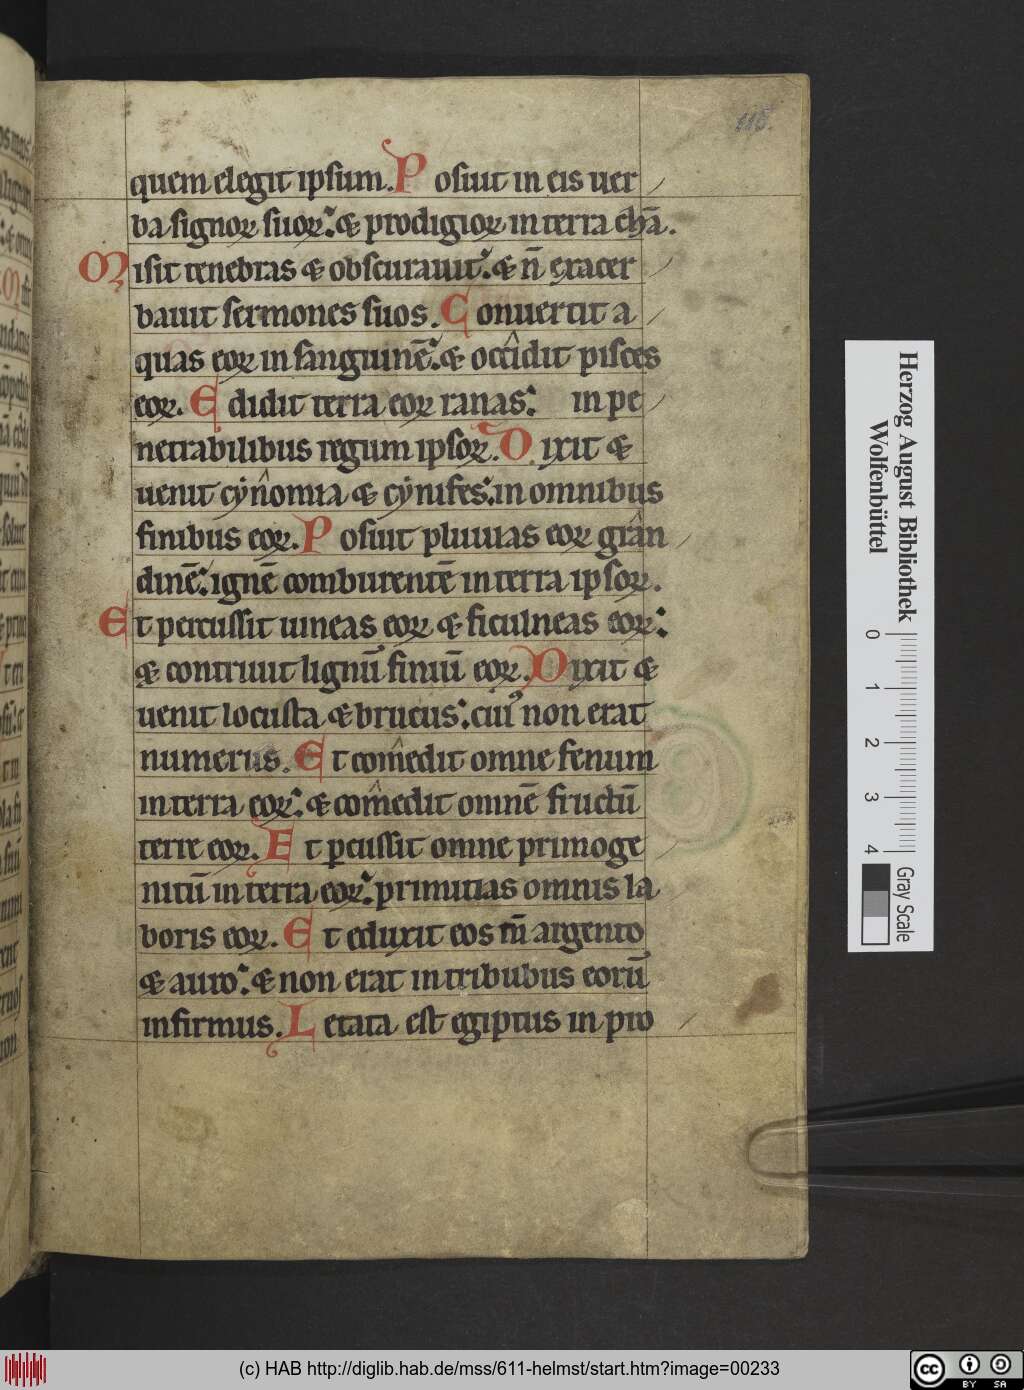 115.
quem elegit ipsum. Posuit in eis uer
ba signoꝝ suoꝝ: & prodigioꝝ in terra chā.
Misit tenebras & obscurauit: & n̄ exacer
bauit sermones suos. Conuertit a
quas eoꝝ in sanguinē: & occidit pisces
eoꝝ. Edidit terra eoꝝ ranas: in pe
netrabilibus regum ipsoꝝ. Dixit &
uenit cynomia & cynifes: in omnibus
finibus eoꝝ. Posuit pluuias eoꝝ gran
dinē: ignē comburentē in terra ipsoꝝ.
Et percussit uineas eoꝝ & ficulneas eoꝝ:
& contriuit lignū finiū eoꝝ. Dixit &
uenit locusta & brucus: cuiꝰ non erat
numerus. Et comedit omne fenum
in terra eoꝝ: & comedit omnē fructū
terre eoꝝ. Et ꝑcussit omne primoge
nitū in terra eoꝝ: primitias omnis la
boris eoꝝ. Et eduxit eos cū argento
& auro: & non erat in tribubus eorū
infirmus. Letata est egiptus in pro
Herzog August Bibliothek
Wolfenbüttel
0 1 2 3 4
Gray Scale
(c) HAB http://diglib.hab.de/mss/611-helmst/start.htm?image=00233
cc BY SA